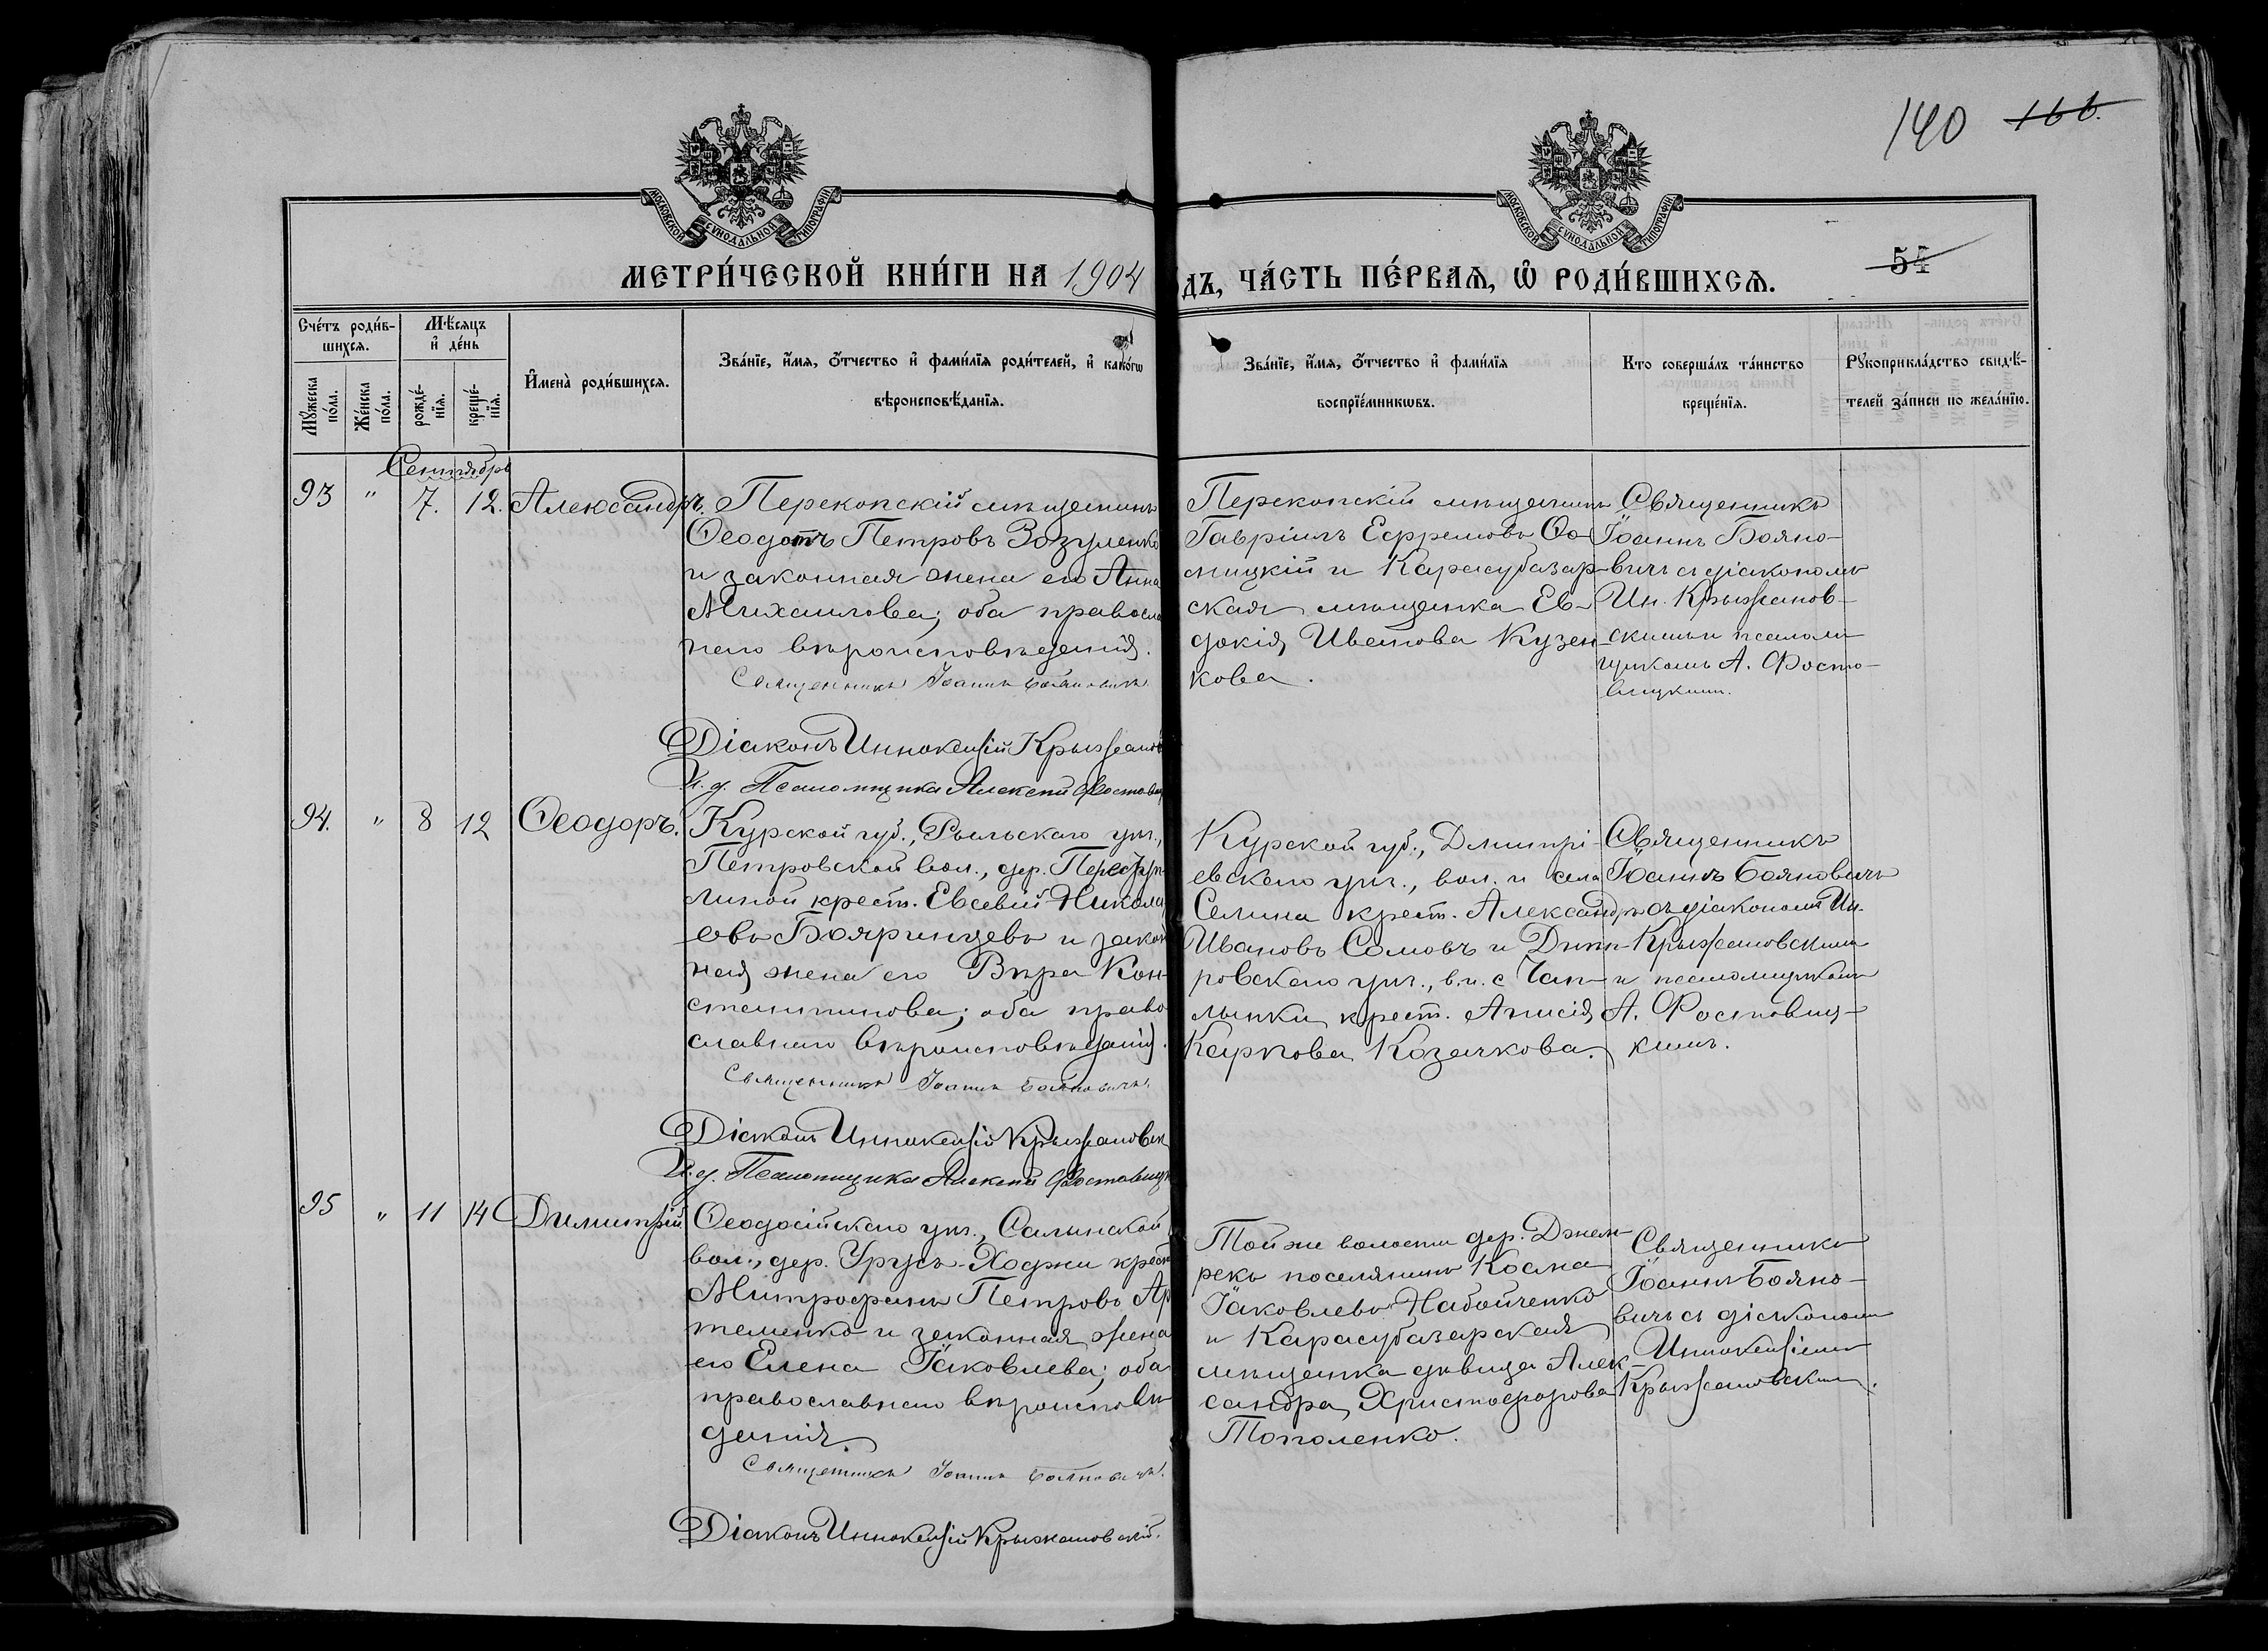 140 166.
МОСКОВСКОЙ СѴНОДАЛЬНОЙ ТИПОГРАФІИ
МОСКОВСКОЙ СѴНОДАЛЬНОЙ ТИПОГРАФІИ
54
МЕТРИ́ЧЕСКОЙ КНИ́ГИ НА 1904
ДЪ, ЧА́СТЬ ПЕ́РВАЯ, Ѡ҆ РОДИ́ВШИХСЯ.
Сче́тъ роди́в-
шихся.
Мѣ́сяцъ
и҆ де́нь
Мꙋ́жеска
по́ла.
Же́нска
по́ла.
рожде́-
нїя.
креще́-
нїя.
И҆мена̀ роди́вшихся.
Зва́нїе, и҆́мя, ѻ҆́тчество и҆ фами́лїя роди́телей, и҆ како́гѡ
вѣроисповѣ́данїя.
Зва́нїе, и҆́мя, ѻ҆́тчество и҆ фами́лїя
воспрїе́мникѡвъ.
Кто соверша́лъ та́инство
креще́нїя.
Рꙋкоприкла́дство свидѣ́-
телей за́писи по жела́нїю.
Сентябрь
93 " 7. 12. Александръ.
Перекопскій мѣщанинъ
Ѳеодотъ Петровъ Зозуленко
и законная жена его Анна
Михаилова; оба правосла
наго вѣроисповѣданія.
Священникъ Іоаннъ Бояновичъ
Діаконъ Иннокентій Крыжанов
И. д. Псаломщика Алексѣй Фостовиц
Перекопскій мѣщанинъ
Гавріилъ Ефремовъ Ѳо-
мицкій и Карасубазар-
ская мѣщанка Ев-
докія Иванова Кузен-
кова.
Священникъ
Іоаннъ Бояно-
вичъ съ діакономъ
Ин. Крыжанов-
скимъ и псалом
щикомъ А. Фосто-
вицкимъ.
94. " 8 12 Ѳеодоръ.
Курской губ., Рыльскаго уѣз.,
Петровской вол., дер.
линой крест. Евсевій Никола
евъ Бояринцевъ и закон
ная жена его Вѣра Кон-
стантинова; оба право
славнаго вѣроисповѣданія.
Священникъ Іоаннъ Бояновичъ.
Діаконъ Иннокентій Крыжановск
И. д. Псаломщика Алексѣй Фостовицк
Курской губ., Дмитрі-
евскаго уѣз., вол. и села
Селина крест. Александръ
Ивановъ Сомовъ и Днѣп-
ровскаго уѣз., в. и с. Чап-
лынки крест. Анисія
Карпова Козачкова.
Священникъ
Іоаннъ Бояновичъ
съ діакономъ Ин.
Крыжановскимъ
и псаломщикомъ
А. Фостовиц-
кимъ.
95 " 11 14 Димитрій
Ѳеодосійскаго уѣз., Салынской
вол., дер. Урусъ-Ходжи крест
Митрофанъ Петровъ Ар
теменко и законная жена
его Елена Іаковлева; оба
православнаго вѣроисповѣ
данія.
Священникъ Іоаннъ Бояновичъ.
Діаконъ Иннокентій Крыжановскій.
Той же волости дер. Джем-
рекъ поселянинъ Косма
Іаковлевъ Набойченко
и Карасубазарская
мѣщанка дѣвица Алек-
сандра Христофорова
Тополенко.
Священникъ
Іоаннъ Бояно-
вичъ съ діакономъ
Иннокентіемъ
Крыжановскимъ.